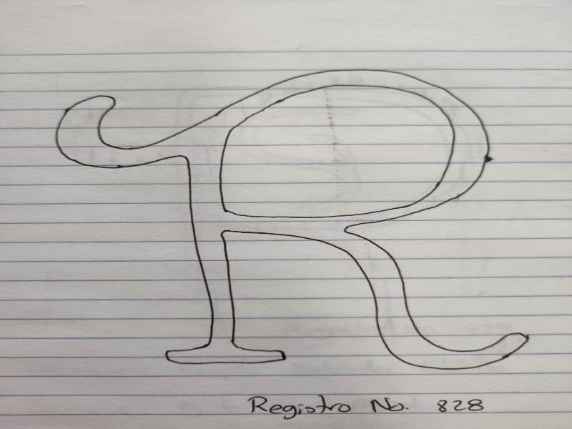 R
Registro No. 828